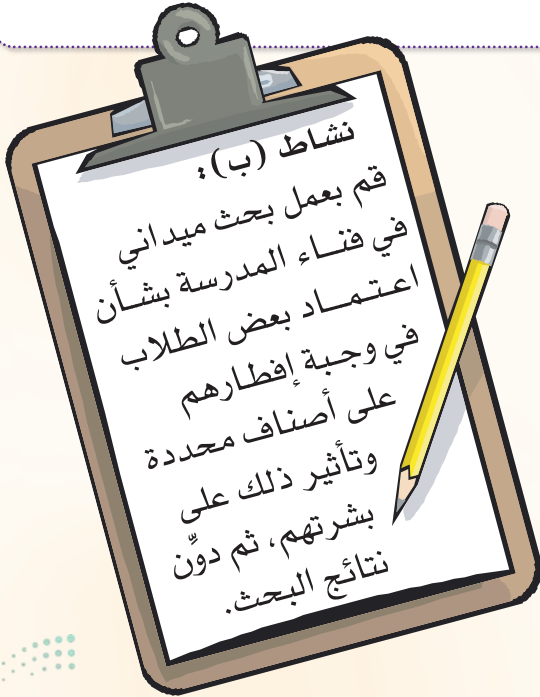 نشاط (ب):
قم بعمل بحث ميداني
في فنـاء المدرسة بشـأن
اعـتـمـاد بعض الطلاب
في وجـبـة إفطـارهم
على أصناف محددة
وتأثير ذلك على
بشرتهم، ثم دوِّن
نتائج البحث.